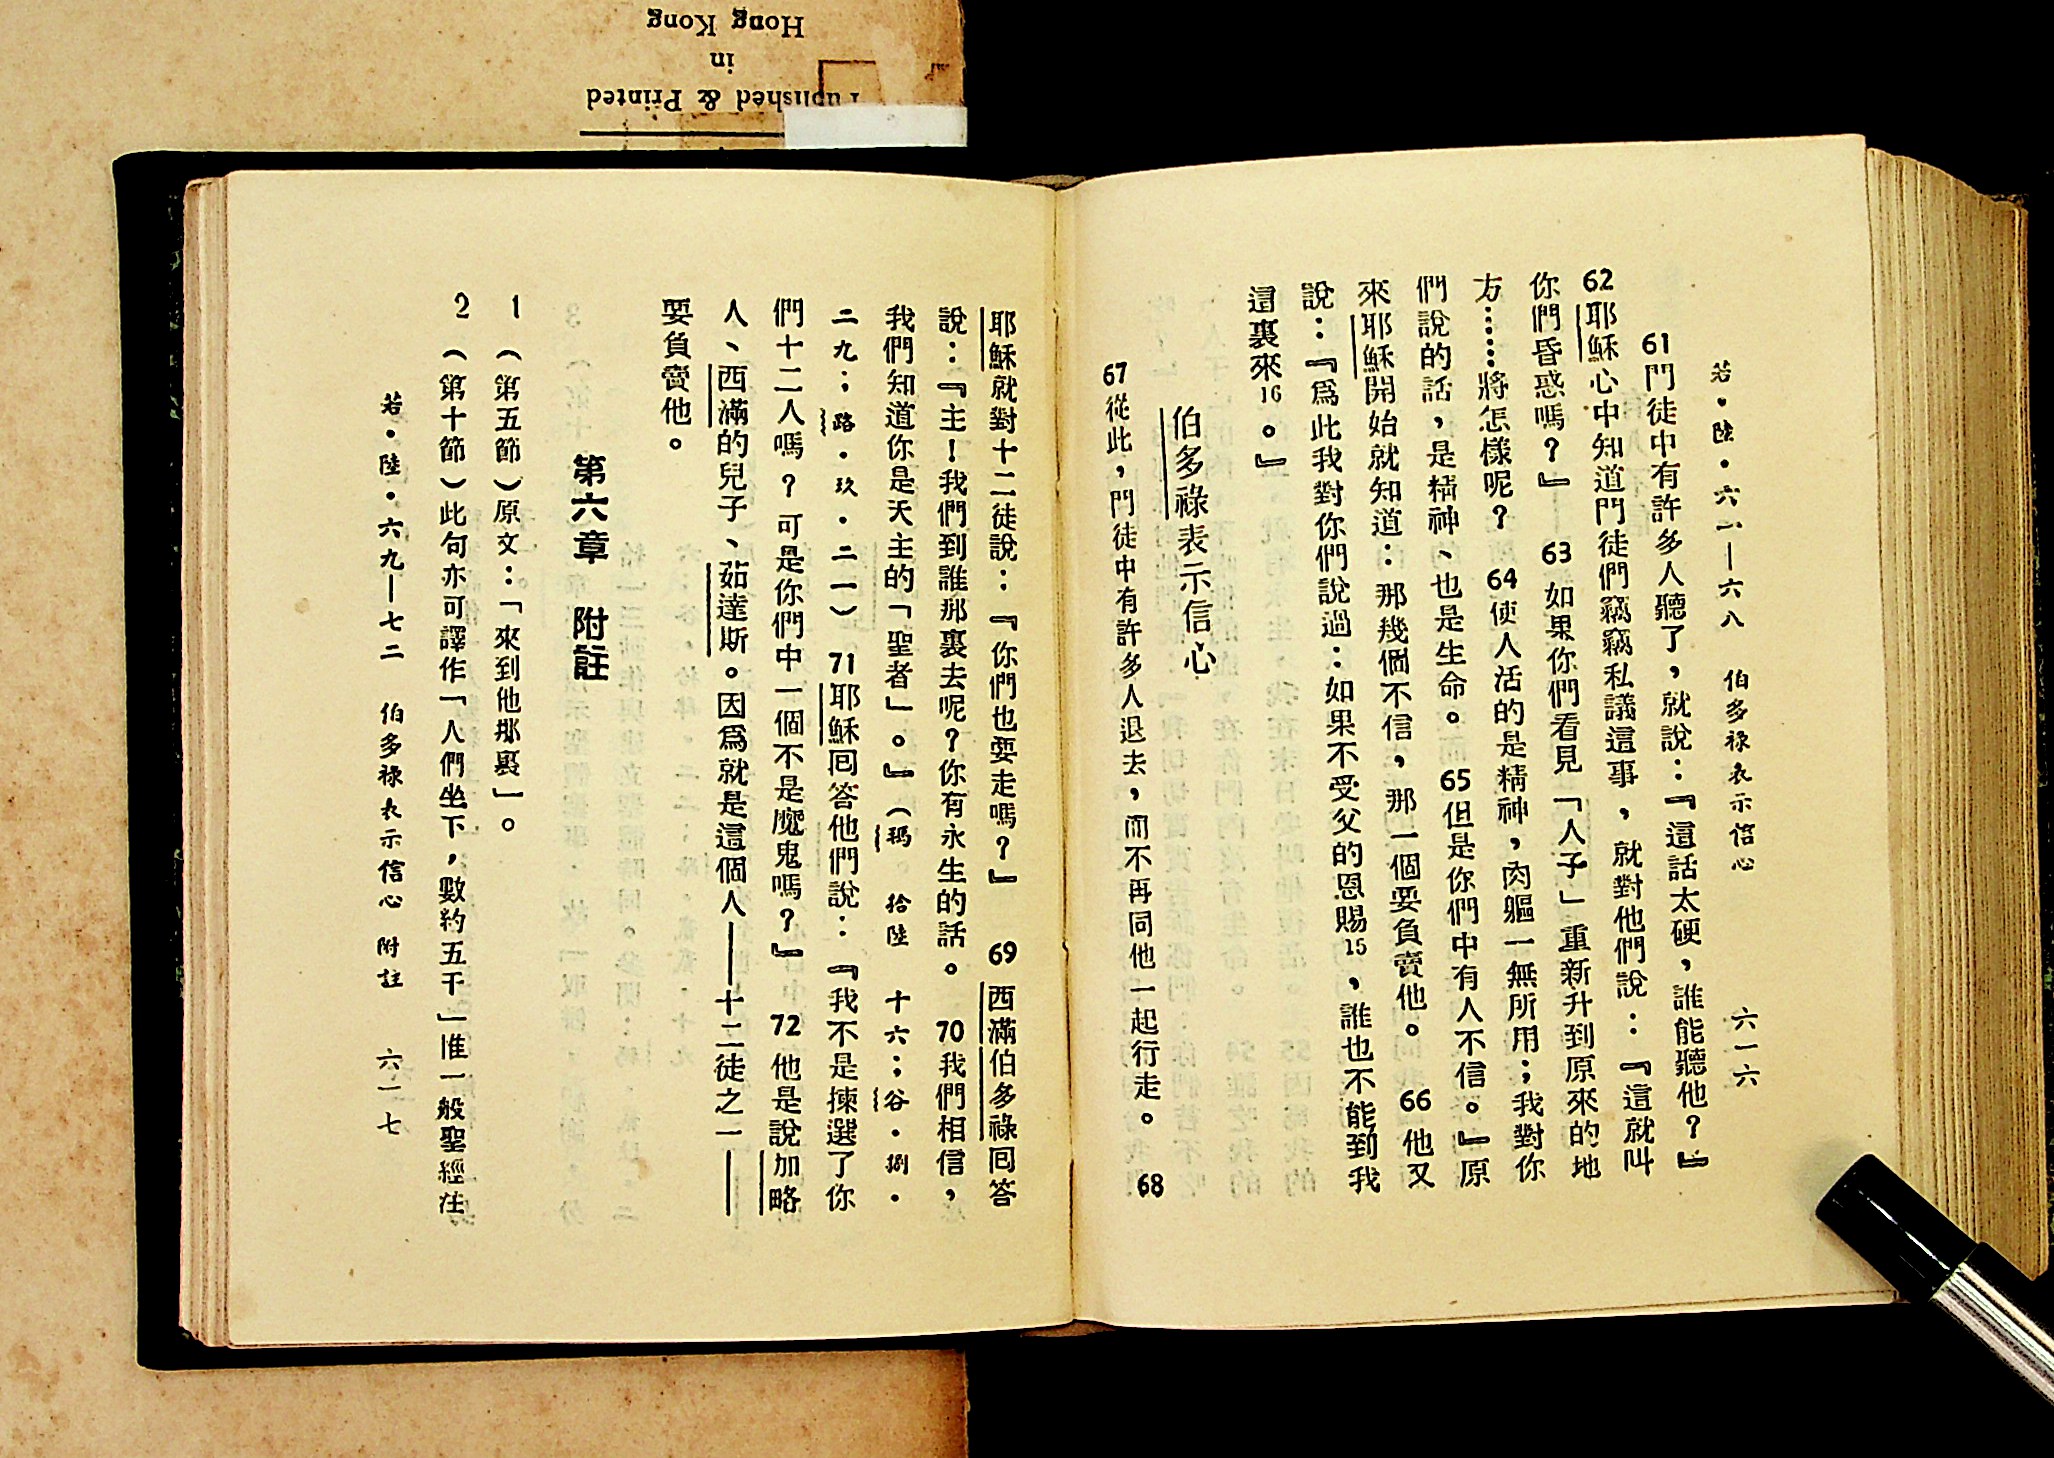 若・陸・六一—六八　伯多祿表示信心　六一六
61門徒中有許多人聽了，就說：『這話太硬，誰能聽他？』
62耶穌心中知道門徒們竊竊私議這事，就對他們說：『這就叫
你們昏惑嗎？』　63如果你們看見「人子」重新升到原來的地
方……將怎樣呢？　64使人活的是精神，肉軀一無所用；我對你
們說的話，是精神、也是生命。　65但是你們中有人不信。』原
來耶穌開始就知道：那幾個不信，那一個要負賣他。　66他又
說：『爲此我對你們說過：如果不受父的恩賜15，誰也不能到我
這裏來16。』
伯多祿表示信心
67從此，門徒中有許多人退去，而不再同他一起行走。　68
耶穌就對十二徒說：『你們也要走嗎？』　69西滿伯多祿回答
說：『主！我們到誰那裏去呢？你有永生的話。　70我們相信，
我們知道你是天主的「聖者」。』（瑪。拾陸　十六；谷・捌・
二九；路・玖・二一）　71耶穌回答他們說：『我不是揀選了你
們十二人嗎？可是你們中一個不是魔鬼嗎？』　72他是說加略
人、西滿的兒子、茹達斯。因爲就是這個人——十二徒之一——
要負賣他。
第六章　附註
1（第五節）原文：「來到他那裏」。
2（第十節）此句亦可譯作「人們坐下，數約五千」惟一般聖經注
若・陸・六九—七二　伯多祿表示信心　附註　六一七
Published & Printed
in
Hong Kong